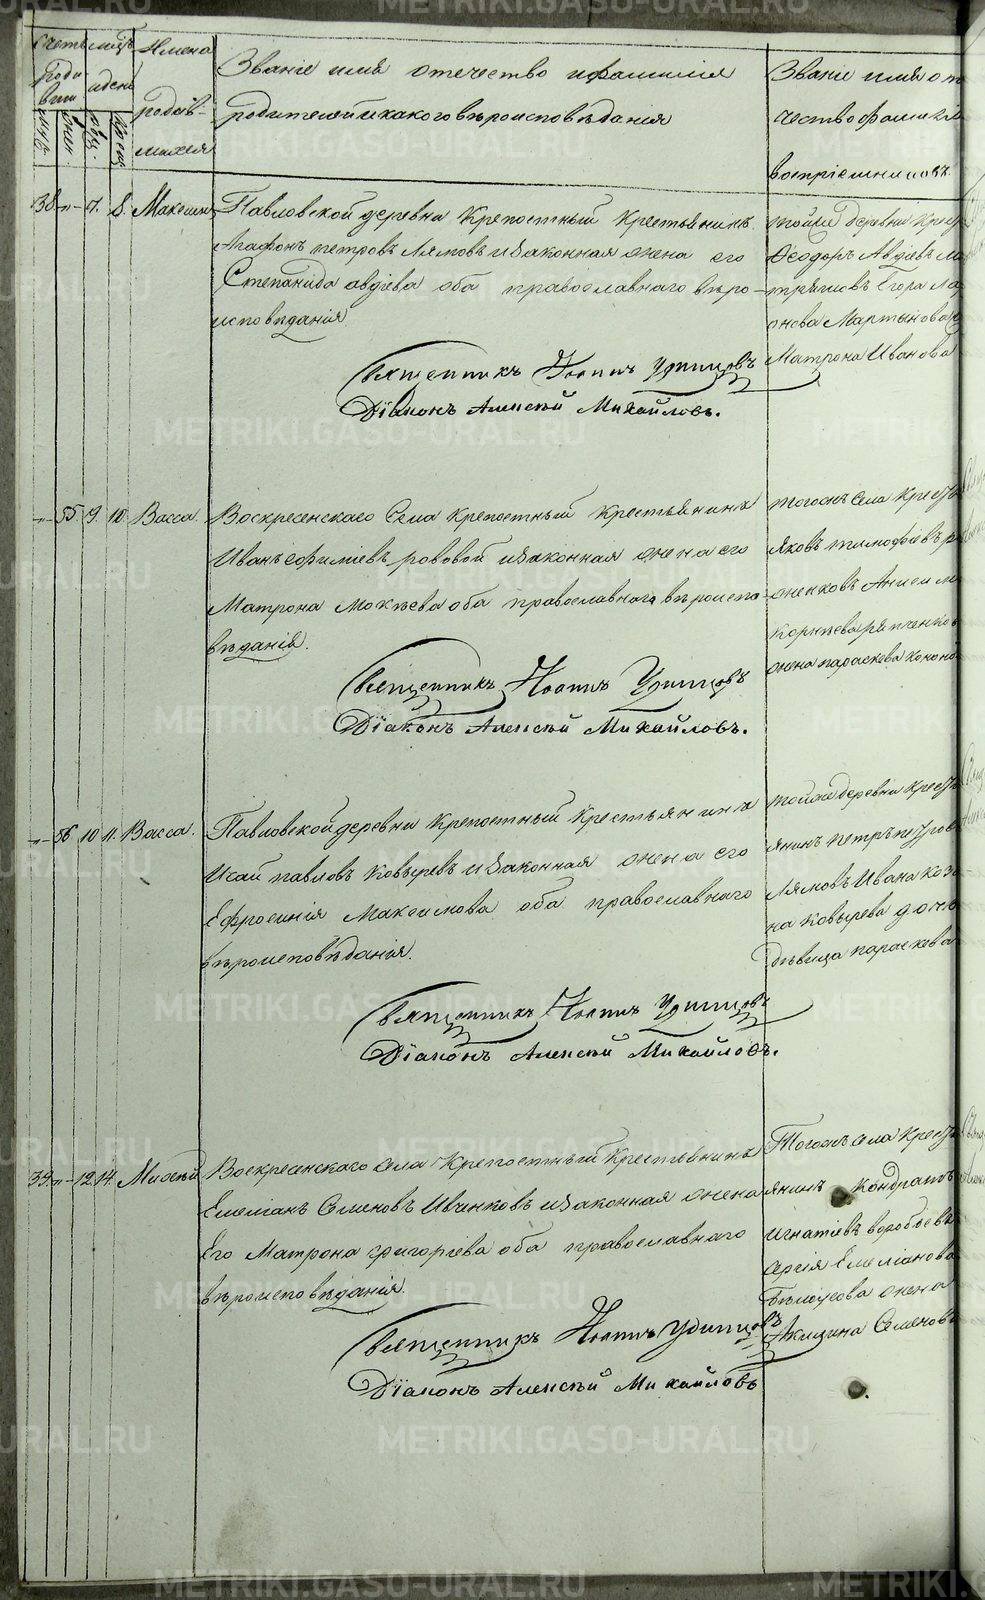 Счетъ
роди
вши
мѣц
а день
Имена
родив-
шихся
Званіе имя отечество и фамилія
родителей и какого вѣроисповѣданія
Званіе имя от
чество фамилія
воспріемниковъ
38 -"- 7. 8. Максим
Павловской деревни Крепостный Крестьянинъ
Агафонъ петровъ Лямовъ и законная жена его
Степанида авдѣева оба православнаго вѣро-
исповѣданія
Священникъ Іоаннъ Удинцовъ
Діаконъ Алексѣй Михайловъ.
тойже деревни Крест
Ѳеодоръ Авдѣевъ
Егора
Мартынова
Матрона Иванова
-"- 55 9. 10. Васса.
Воскресенскаго Села Крепостный Крестьянинъ
Иванъ ефимьевъ рововой и законная жена его
Матрона Мокѣева оба православнаго вѣроиспо-
вѣданія.
Священникъ Іоаннъ Удинцовъ
Діаконъ Алексѣй Михайловъ.
тогожъ села Крестъ
Яковъ тимофѣевъ
женковъ
Корнѣева
жена параскева
-"- 56 10 11. Васса.
Павловской деревни Крепостный Крестьянинъ
Исай павловъ Ковыревъ и законная жена его
Ефросинія Максимова оба православнаго
вѣроисповѣданія.
Священникъ Іоаннъ Удинцовъ
Діаконъ Алексѣй Михайловъ.
тойже деревни Крестъ
янинъ петръ
Лямовъ Ивана
на Ковырева дочь
дѣвица параскева
39. -"- 12. 14. Моѵсей
Воскресенскаго села Крепостный Крестьянинъ
Емельянъ Семеновъ Ивченковъ и законная жена
Его Матрона григорьева оба православнаго
вѣроисповѣданія.
Священникъ Іоаннъ Удинцовъ
Діаконъ Алексѣй Михайловъ
Тогожъ села Крестъ
янинъ Кондратъ
игнатіевъ воробьевъ
Емельянова
Бѣлоусова жена
Акилина Семенов
METRIKI.GASO-URAL.RU